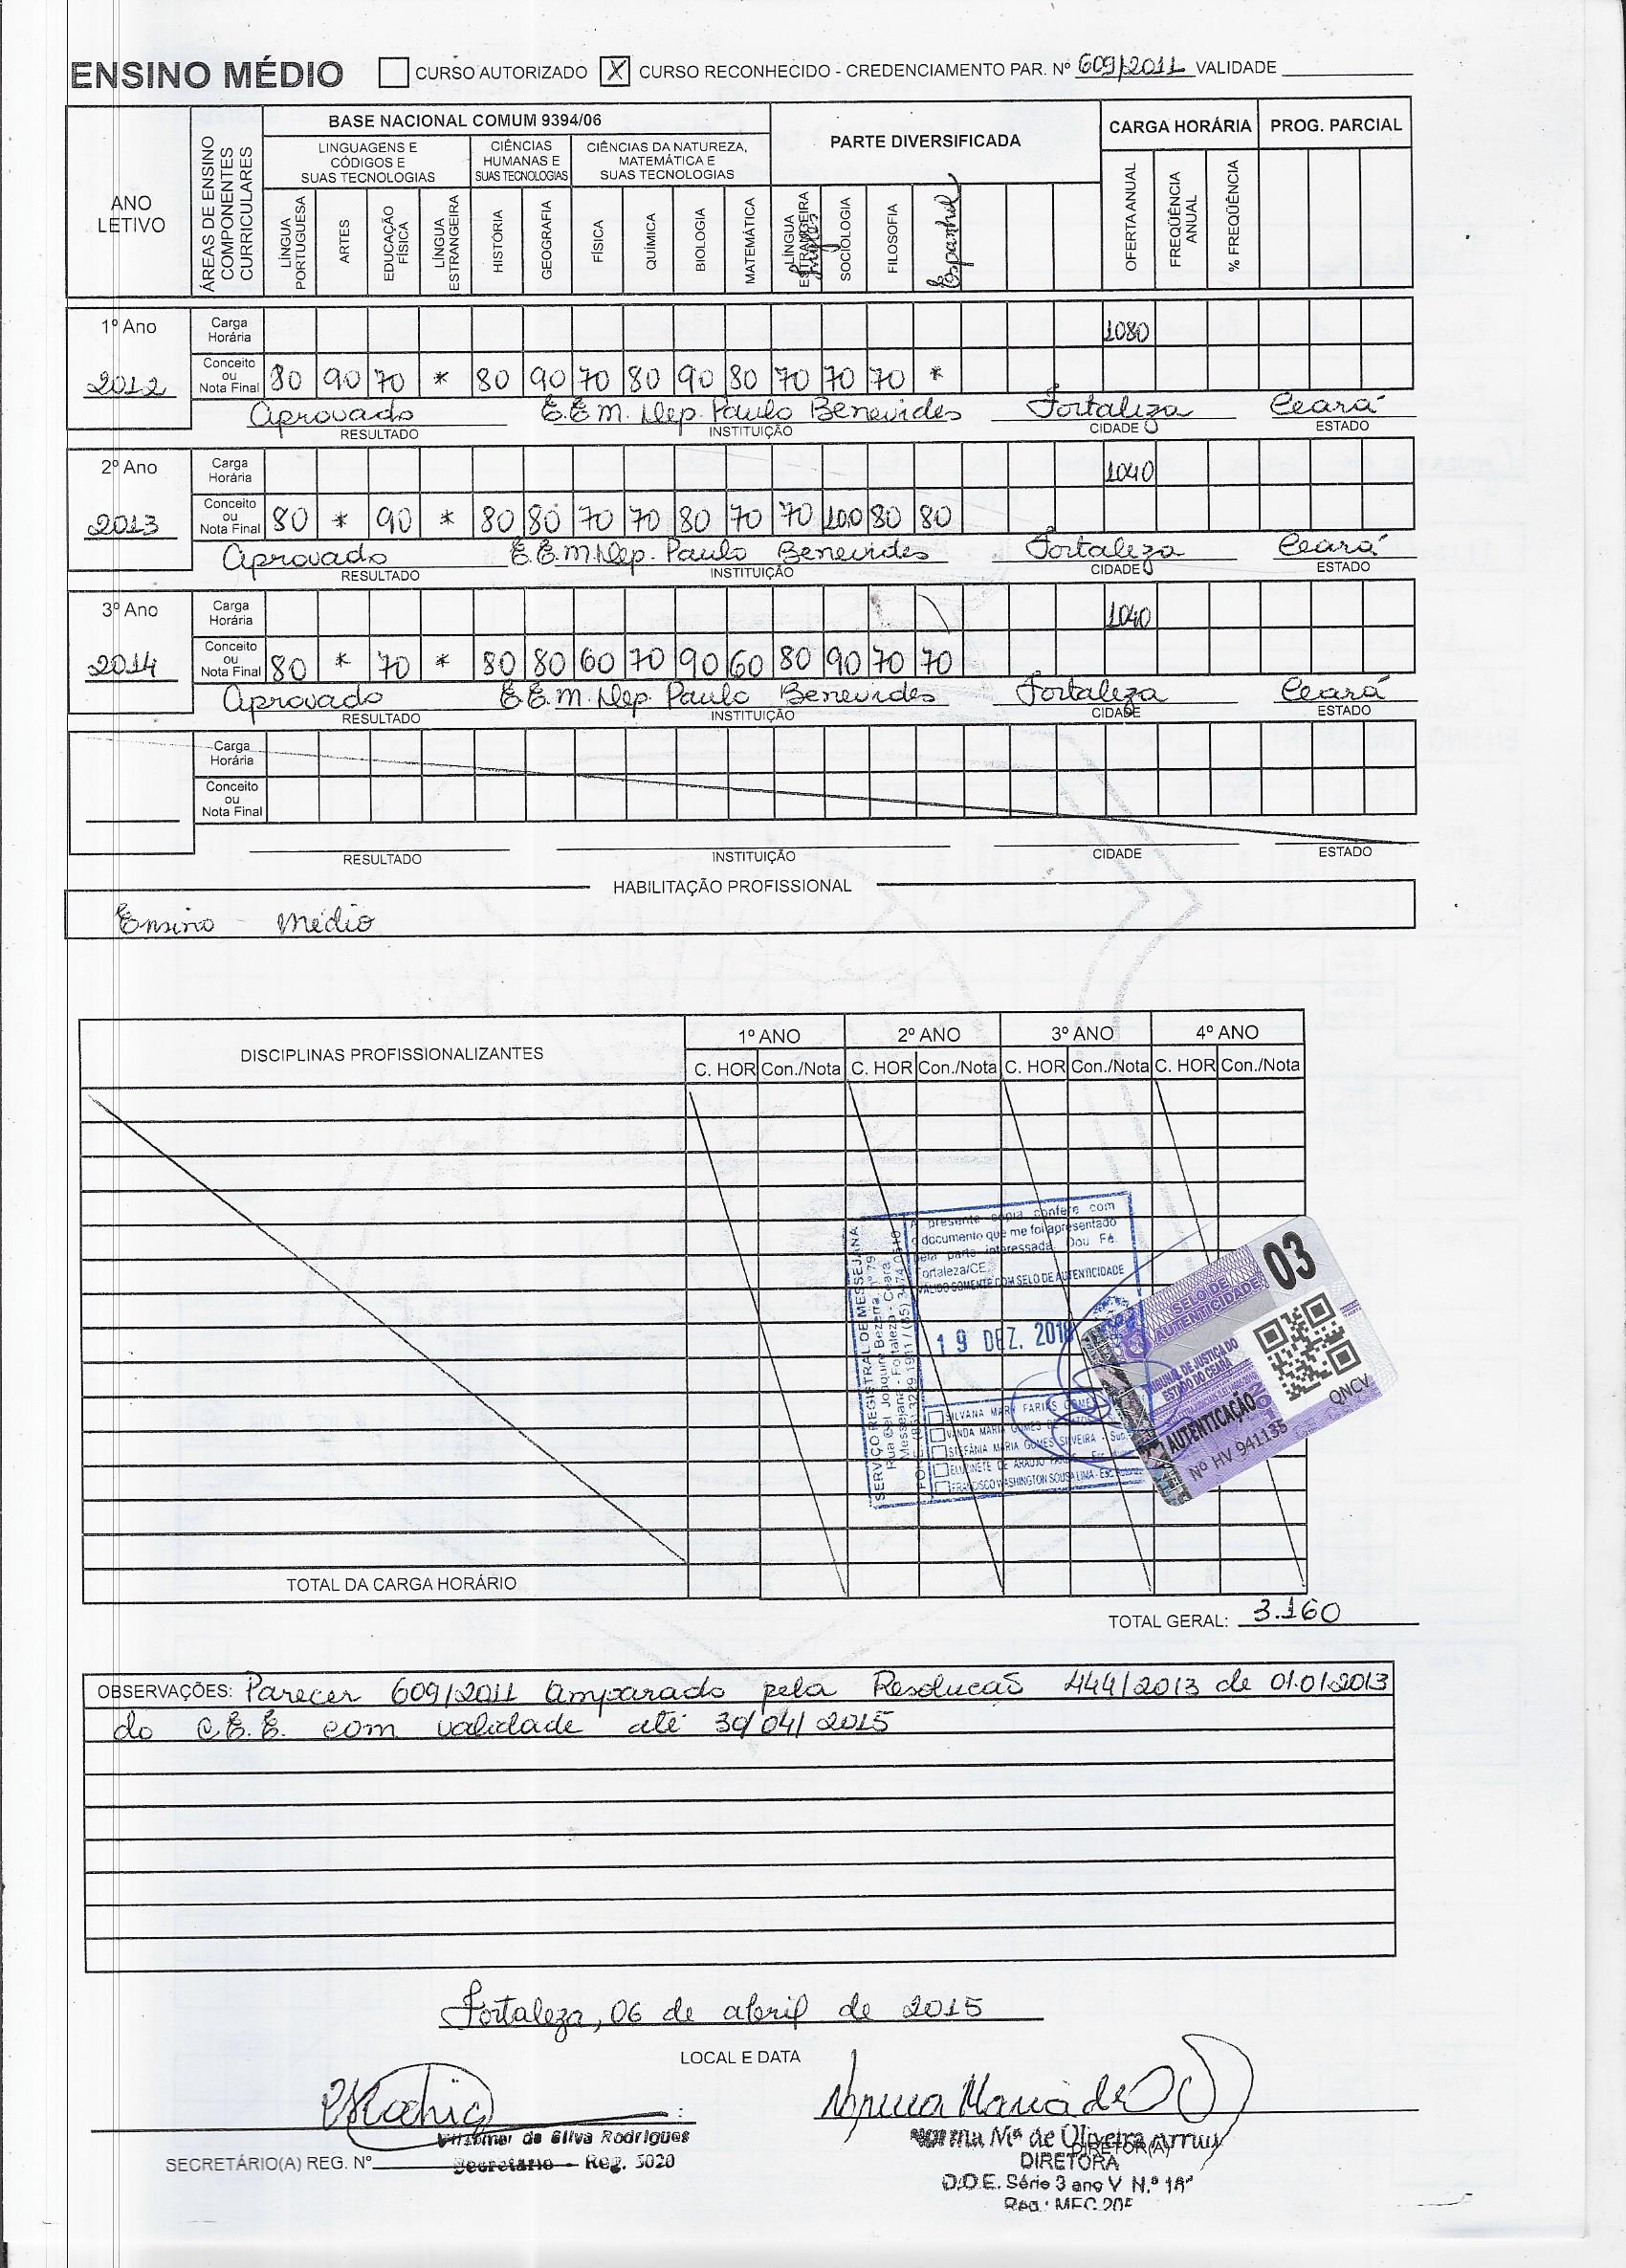 ENSINO MÉDIO CURSO AUTORIZADO X CURSO RECONHECIDO - CREDENCIAMENTO PAR. Nº 609/2011 VALIDADE
ANO LETIVO
ÁREAS DE ENSINO COMPONENTES CURRICULARES
BASE NACIONAL COMUM 9394/06
PARTE DIVERSIFICADA
CARGA HORÁRIA
PROG. PARCIAL
LINGUAGENS E CÓDIGOS E SUAS TECNOLOGIAS
CIÊNCIAS HUMANAS E SUAS TECNOLOGIAS
CIÊNCIAS DA NATUREZA, MATEMÁTICA E SUAS TECNOLOGIAS
LÍNGUA PORTUGUESA
ARTES
EDUCAÇÃO FÍSICA
LÍNGUA ESTRANGEIRA
HISTÓRIA
GEOGRAFIA
FÍSICA
QUÍMICA
BIOLOGIA
MATEMÁTICA
LÍNGUA ESTRANGEIRA Inglês
SOCIOLOGIA
FILOSOFIA
Espanhol
OFERTA ANUAL
FREQÜÊNCIA ANUAL
% FREQÜÊNCIA
1º Ano Carga Horária 1080
2012 Conceito ou Nota Final 80 90 70 * 80 90 70 80 90 80 70 70 70 *
Aprovado E.E.M. Dep. Paulo Benevides Fortaleza Ceará
RESULTADO INSTITUIÇÃO CIDADE ESTADO
2º Ano Carga Horária 1040
2013 Conceito ou Nota Final 80 * 90 * 80 80 70 70 80 70 70 100 80 80
Aprovado E.E.M. Dep. Paulo Benevides Fortaleza Ceará
RESULTADO INSTITUIÇÃO CIDADE ESTADO
3º Ano Carga Horária 1040
2014 Conceito ou Nota Final 80 * 70 * 80 80 60 70 90 60 80 90 70 70
Aprovado E.E.M. Dep. Paulo Benevides Fortaleza Ceará
RESULTADO INSTITUIÇÃO CIDADE ESTADO
Carga Horária
Conceito ou Nota Final
RESULTADO INSTITUIÇÃO CIDADE ESTADO
HABILITAÇÃO PROFISSIONAL
Ensino Médio
DISCIPLINAS PROFISSIONALIZANTES 1º ANO 2º ANO 3º ANO 4º ANO
C. HOR Con./Nota C. HOR Con./Nota C. HOR Con./Nota C. HOR Con./Nota
SERVIÇO REGISTRAL DE MESSEJANA
Rua Cel Joaquim Bezerra, nº 79
Messejana - Fortaleza - Ceará
A presente cópia confere com
o documento que me foi apresentado
pela parte interessada. Dou Fé.
Fortaleza/CE,
VÁLIDO SOMENTE COM SELO DE AUTENTICIDADE
19 DEZ.
SILVANA MARY FARIAS GOMES
VANDA MARIA GOMES
STEFÂNIA MARIA GOMES SILVEIRA - Sub
DE ARAUJO
FRANCISCO WASHINGTON SOUSA LIMA - Esc
SELO DE AUTENTICIDADE
03
TRIBUNAL DE JUSTIÇA DO ESTADO DO CEARÁ
AUTENTICAÇÃO
QNCV
Nº HV 941135
TOTAL DA CARGA HORÁRIO
TOTAL GERAL: 3.160
OBSERVAÇÕES: Parecer 609/2011 Amparado pela Resolucaõ 444/2013 de 01.01.2013
do C.E.E. com validade até 30/04/2015
Fortaleza, 06 de abril de 2015
LOCAL E DATA
Norma Maria de
da Silva Rodrigues
SECRETÁRIO(A) REG. Nº Secretário - Reg. 5020
Norma Mª de Oliveira Arruy
DIRETOR(A)
DIRETORA
D.O.E. Série 3 ano V N.º
Reg.: MEC